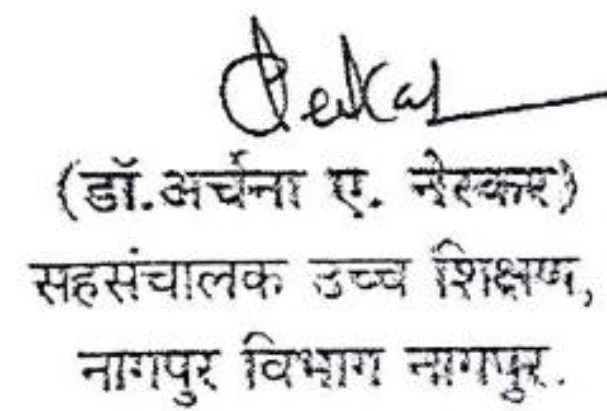 (डॉ.अर्चना ए. नेरकर)
सहसंचालक उच्च शिक्षण,
नागपुर विभाग नागपुर.